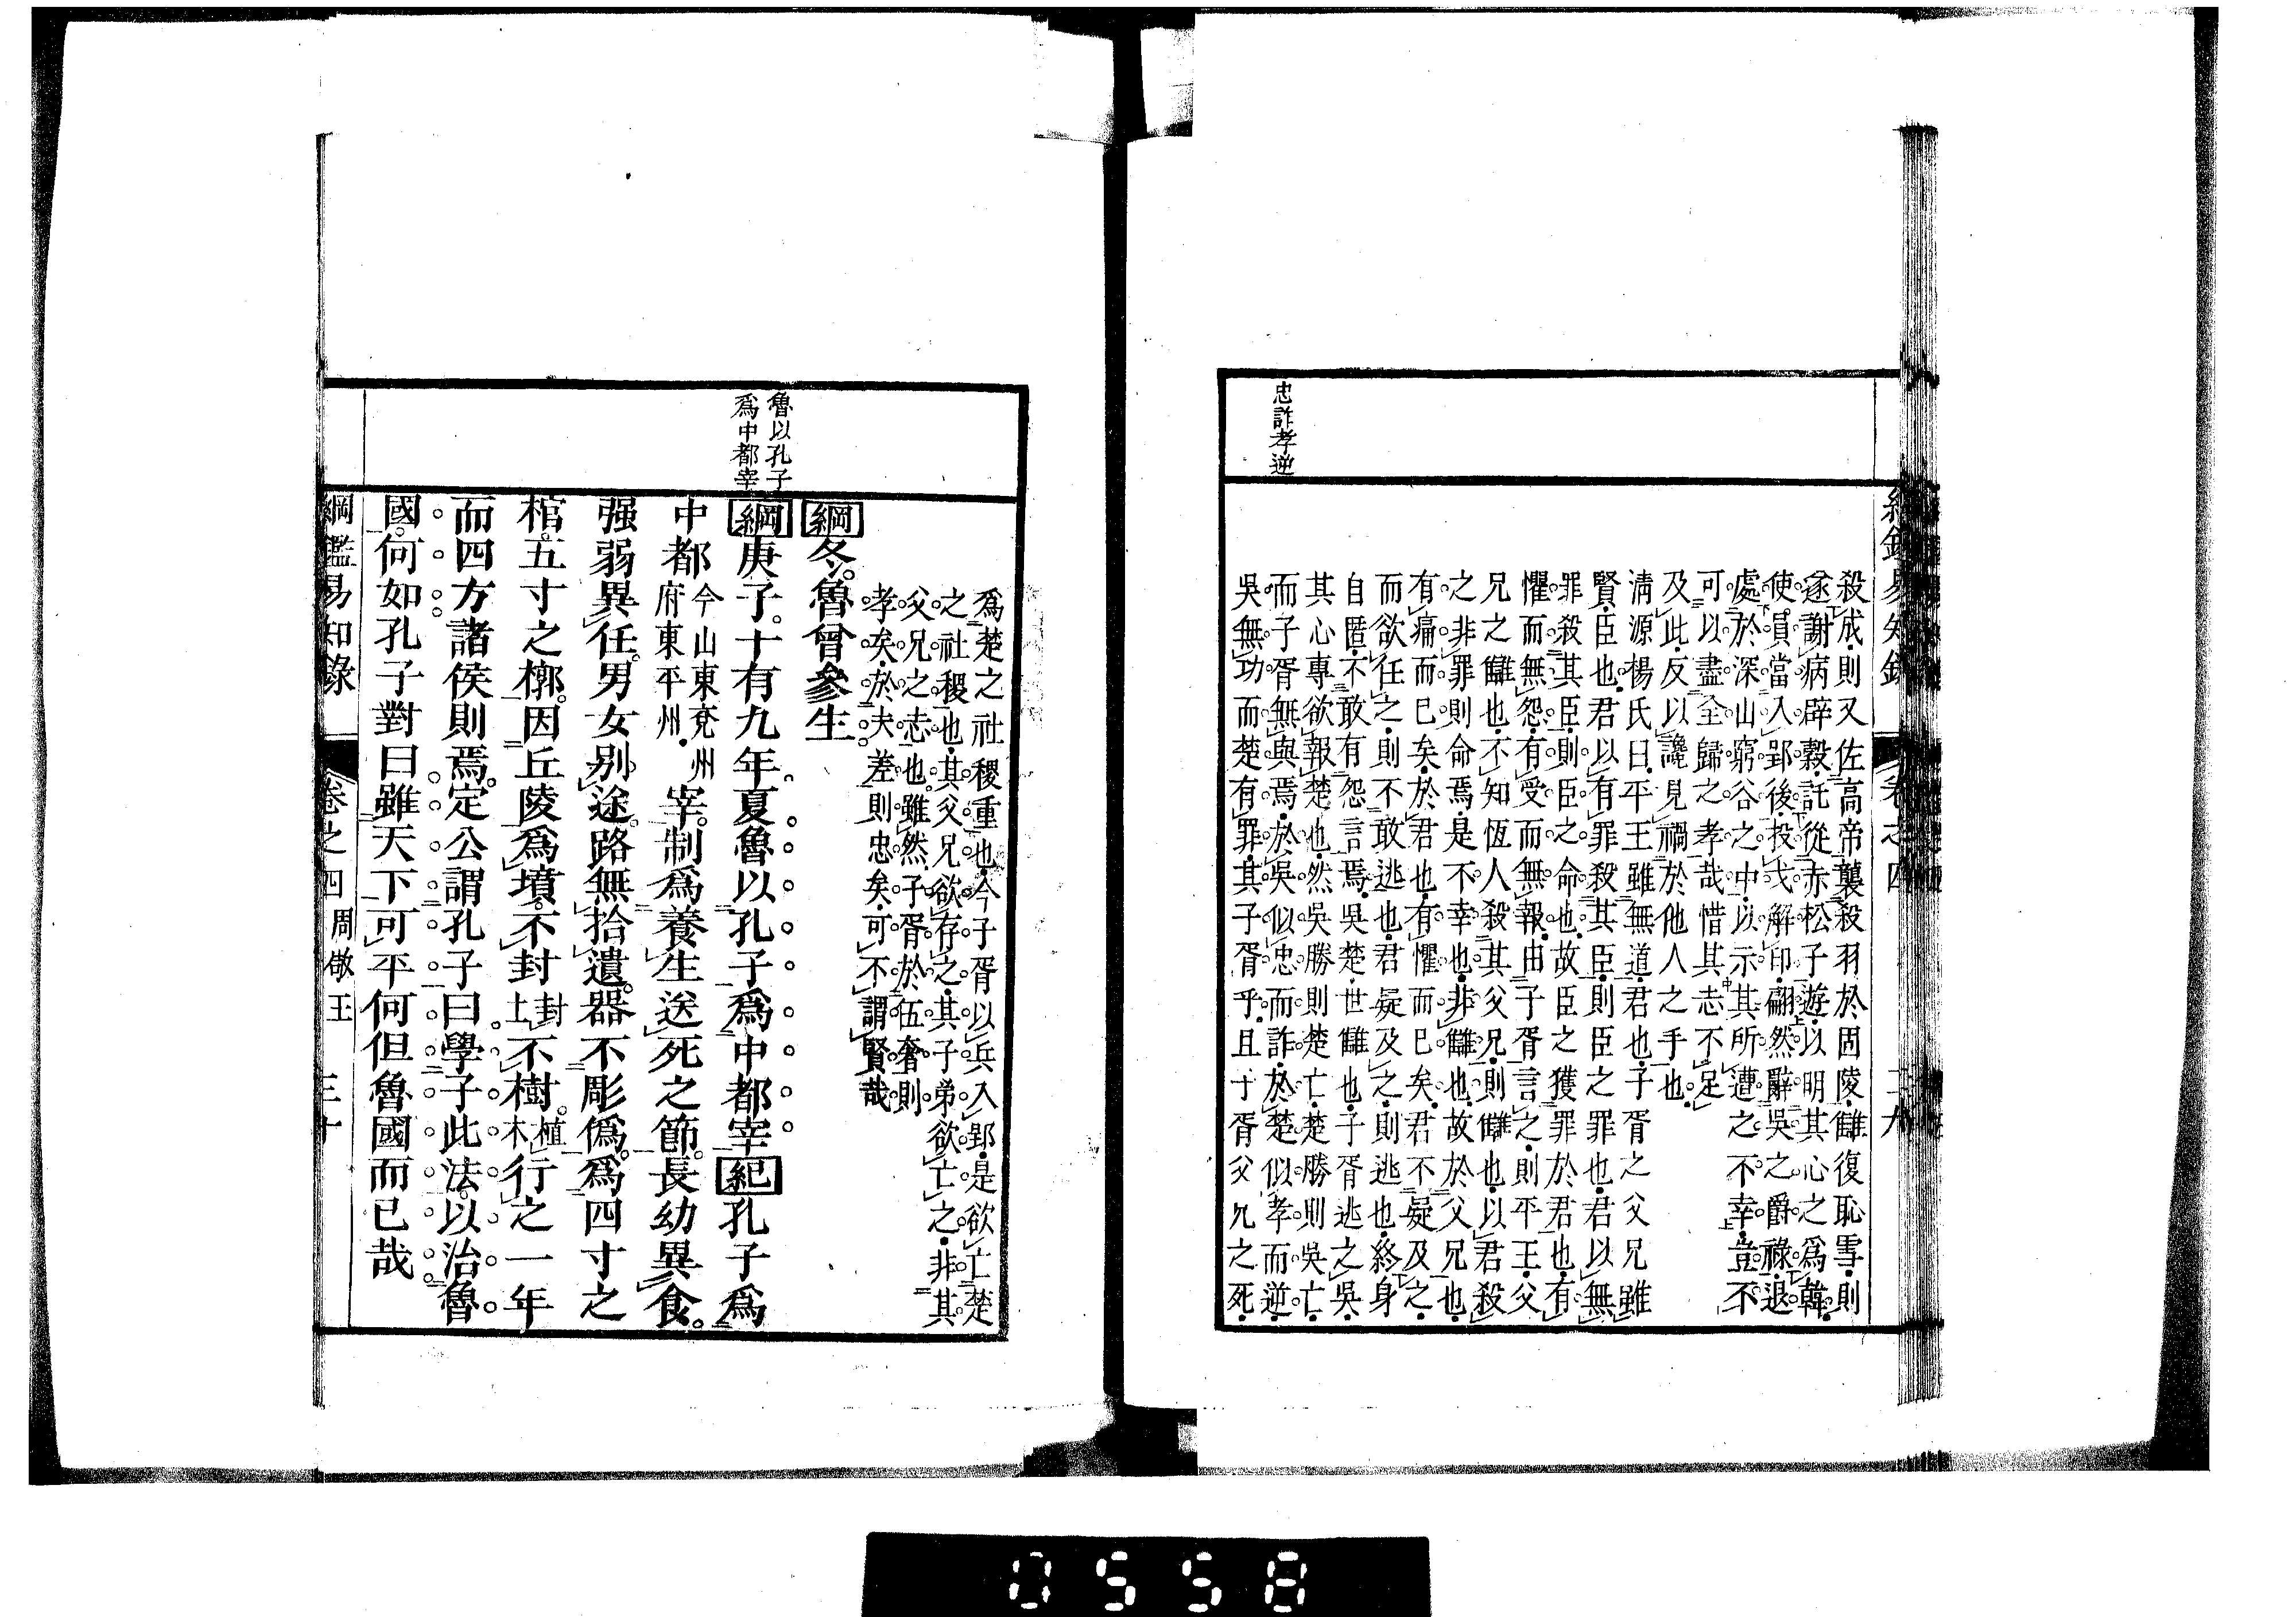 綱鑑易知錄 卷之四 二十九
忠詐孝逆
殺成則又佐高帝襲殺羽於固陵讎復恥雪則
遂謝病辟穀託從赤松子遊以明其心之爲韓
使員當入郢後投戈解印翩然辭吳之爵祿退
處於深山窮谷之中以示其所遭之不幸豈不
可以盡全歸之孝哉惜其志不足
及此反以讒見禍於他人之手也
清源楊氏曰平王雖無道君也子胥之父兄雖
賢臣也君以有罪殺其臣則臣之罪也君以無
罪殺其臣則臣之命也故臣之獲罪於君也有
懼而無怨有受而無報由子胥言之則平王父
兄之讎也不知恆人殺其父兄則讎也以君殺
之非罪則命焉是不幸也非讎也故於父兄也
有痛而已矣於君也有懼而已矣君不疑及之
而欲任之則不敢逃也君疑及之則逃也終身
自匿不敢有怨言焉吳楚世讎也子胥逃之吳
其心專欲報楚也然吳勝則楚亡楚勝則吳亡
而子胥無與焉於吳似忠而詐於楚似孝而逆
吳無功而楚有罪其子胥乎且子胥父兄之死
爲楚之社稷重也今子胥以兵入郢是欲亡楚
之社稷也其父兄欲存之其子弟欲亡之非其
父兄之志也雖然子胥於伍奢則
孝矣於夫差則忠矣可不謂賢哉
綱冬魯曾參生
魯以孔子
爲中都宰
綱庚子十有九年夏魯以孔子爲中都宰紀孔子爲
中都今山東兗州府東平州宰制爲養生送死之節長幼異食
强弱異任男女別途路無拾遺器不彫僞爲四寸之
棺五寸之槨因丘陵爲墳不封封土不樹植木行之一年
而四方諸侯則焉定公謂孔子曰學子此法以治魯
國何如孔子對曰雖天下可平何但魯國而已哉
綱鑑易知錄 卷之四 周敬王 三十
0558